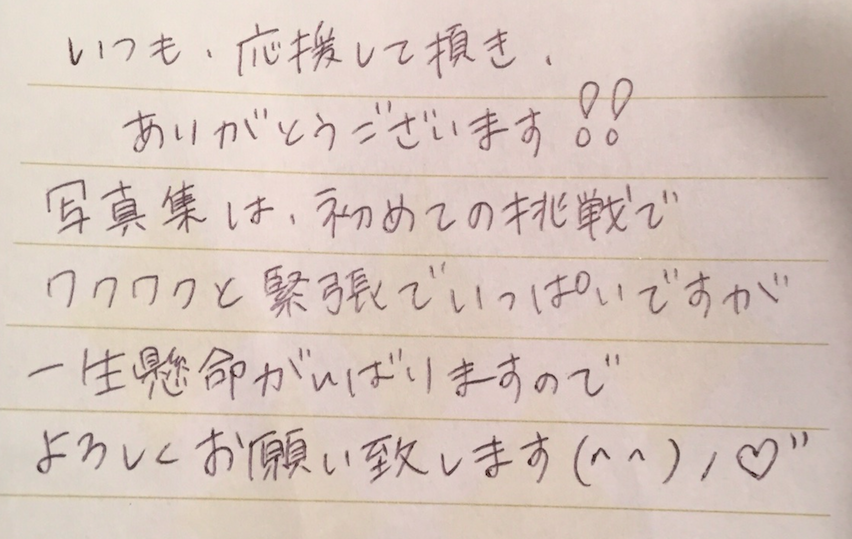 いつも、応援して頂き、
ありがとうございます!!
写真集は、初めての挑戦で
ワクワクと緊張でいっぱいですが
一生懸命がんばりますので
よろしくお願い致します(^^)ノ♡"